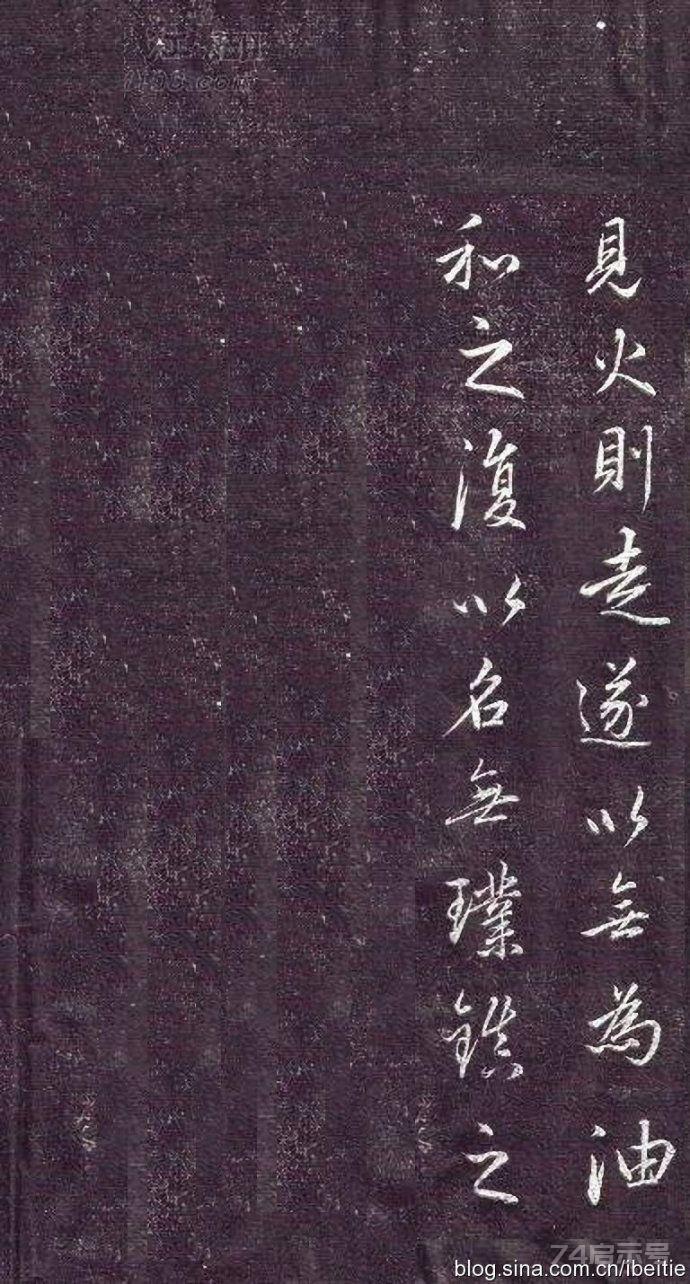 見火則走遂以無為油
和之復以名無璞鎮之
74启示号
blog.sina.com.cn/ibeitie